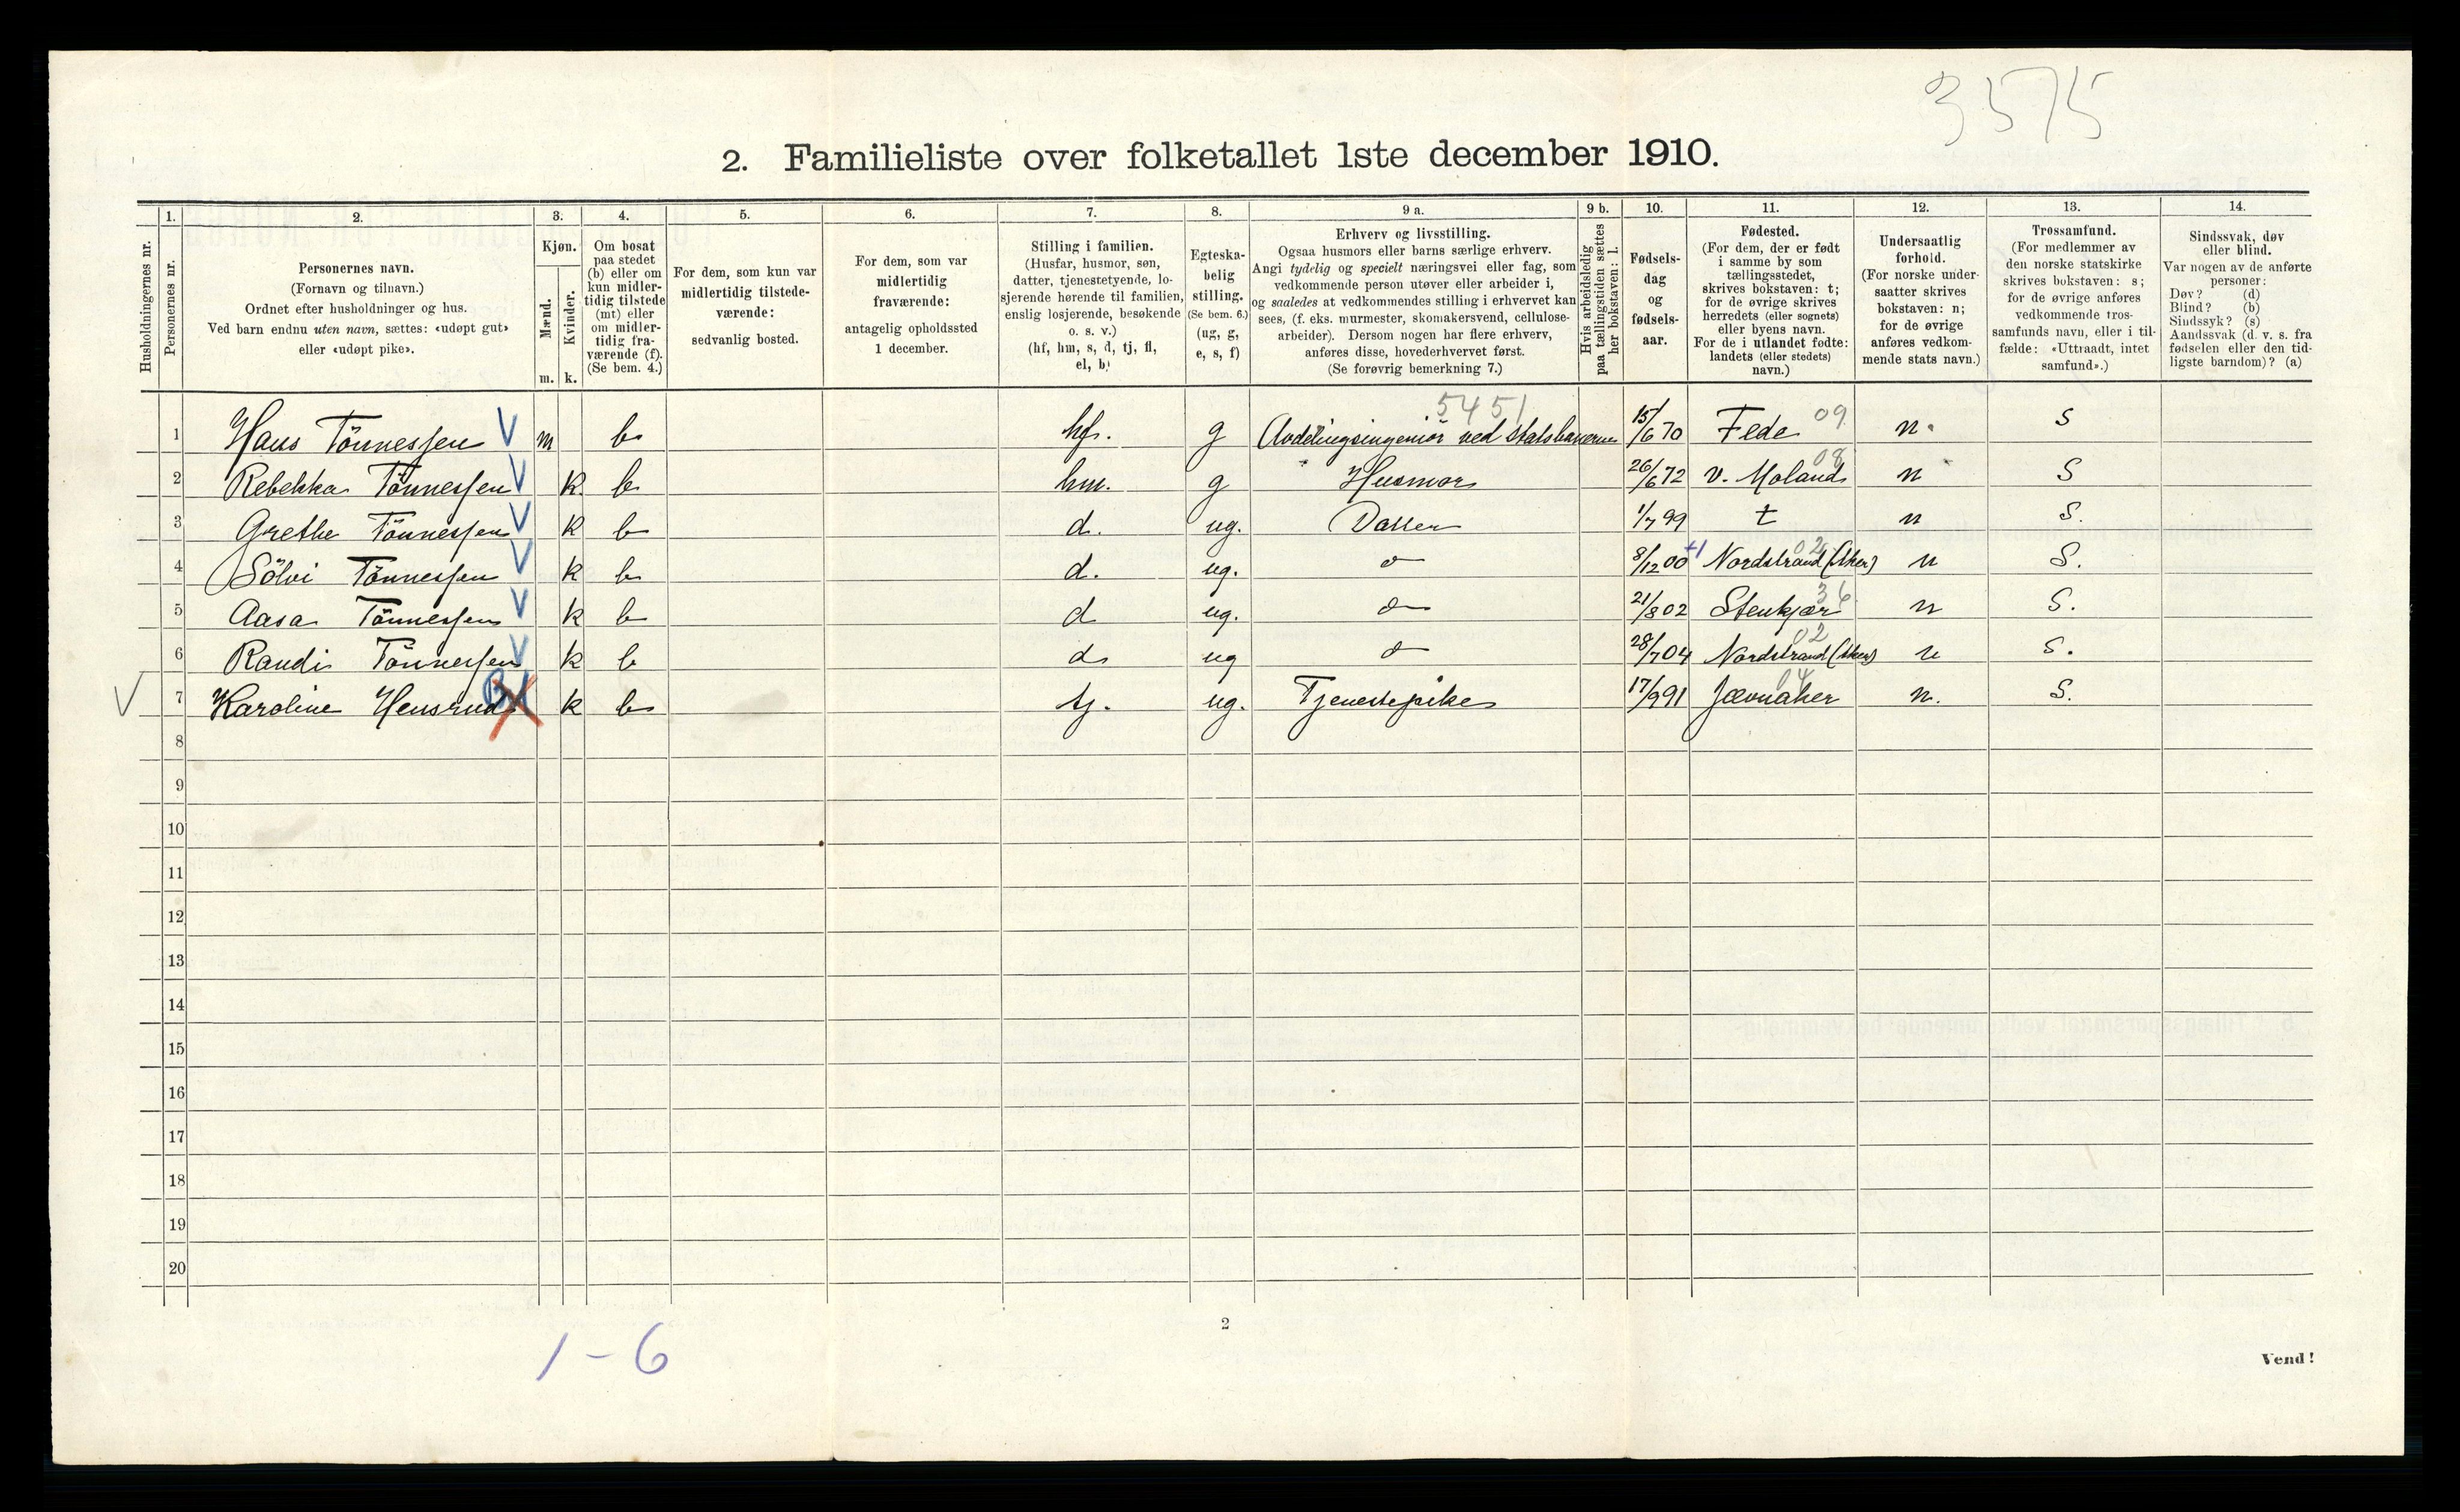 3575
2. Familieliste over folketallet 1ste december 1910.
Husholdningernes nr.
1.
Personernes nr.
2.
Personernes navn.
(Fornavn og tilnavn.)
Ordnet efter husholdninger og hus.
Ved barn endnu uten navn, sættes: «udøpt gut»
eller «udøpt pike».
3.
Kjøn.
Mænd.
Kvinder.
m. k.
4.
Om bosat
paa stedet
(b) eller om
kun midler-
tidig tilstede
(mt) eller
om midler-
tidig fra-
værende (f).
(Se bem. 4.)
5.
For dem, som kun var
midlertidig tilstede-
værende:
sedvanlig bosted.
6.
For dem, som var
midlertidig
fraværende:
antagelig opholdssted
1 december.
7.
Stilling i familien.
(Husfar, husmor, søn,
datter, tjenestetyende, lo-
sjerende hørende til familien,
enslig losjerende, besøkende
o. s. v.)
(hf, hm, s, d, tj, fl,
el, b)
8.
Egteska-
belig
stilling.
(Se bem. 6.)
(ug, g,
e, s, f)
9 a.
Erhverv og livsstilling.
Ogsaa husmors eller barns særlige erhverv.
Angi tydelig og specielt næringsvei eller fag, som
vedkommende person utøver eller arbeider i,
og saaledes at vedkommendes stilling i erhvervet kan
sees, (f. eks. murmester, skomakersvend, cellulose-
arbeider). Dersom nogen har flere erhverv,
anføres disse, hovederhvervet først.
(Se forøvrig bemerkning 7.)
9 b.
Hvis arbeidsledig
paa tællingstiden sættes
her bokstaven: l.
10.
Fødsels-
dag
og
fødsels-
aar.
11.
Fødested.
(For dem, der er født
i samme by som
tællingsstedet,
skrives bokstaven: t;
for de øvrige skrives
herredets (eller sognets)
eller byens navn.
For de i utlandet fødte:
landets (eller stedets)
navn.)
12.
Undersaatlig
forhold.
(For norske under-
saatter skrives
bokstaven: n;
for de øvrige
anføres vedkom-
mende stats navn.)
13.
Trossamfund.
(For medlemmer av
den norske statskirke
skrives bokstaven: s;
for de øvrige anføres
vedkommende tros-
samfunds navn, eller i til-
fælde: «Uttraadt, intet
samfund».)
14.
Sindssvak, døv
eller blind.
Var nogen av de anførte
personer:
Døv? (d)
Blind? (b)
Sindssyk? (s)
Aandssvak (d. v. s. fra
fødselen eller den tid-
ligste barndom)? (a)
5451
1 Hans Tönnessen V m b hf. g Avdelingsingeniör ved statsbanerne 15/6 70 Fede 09 n. S
2 Rebekka Tönnessen V k b hm. g Husmor 26/6 72 V. Moland 08 n S
3 Grethe Tönnessen V k b d. ug. Datter 1/7 99 t n S.
4 Sölvi Tönnessen V k b d. ug. o 8/12 00 +1 Nordstrand (Aker) 02 n S.
5 Aasa Tönnessen V k b d ug. o 21/8 02 Stenkjær 36 n S.
6 Randi Tönnessen V k b d ug o 28/7 04 Nordstrand (Aker) 02 n S.
V 7 Karoline Hensrud k b tj. ug. Tjenestepike 17/9 91 Jævnaker 04 n. S.
8
9
10
11
12
13
14
15
16
17
18
19
20
1-6
2
Vend!